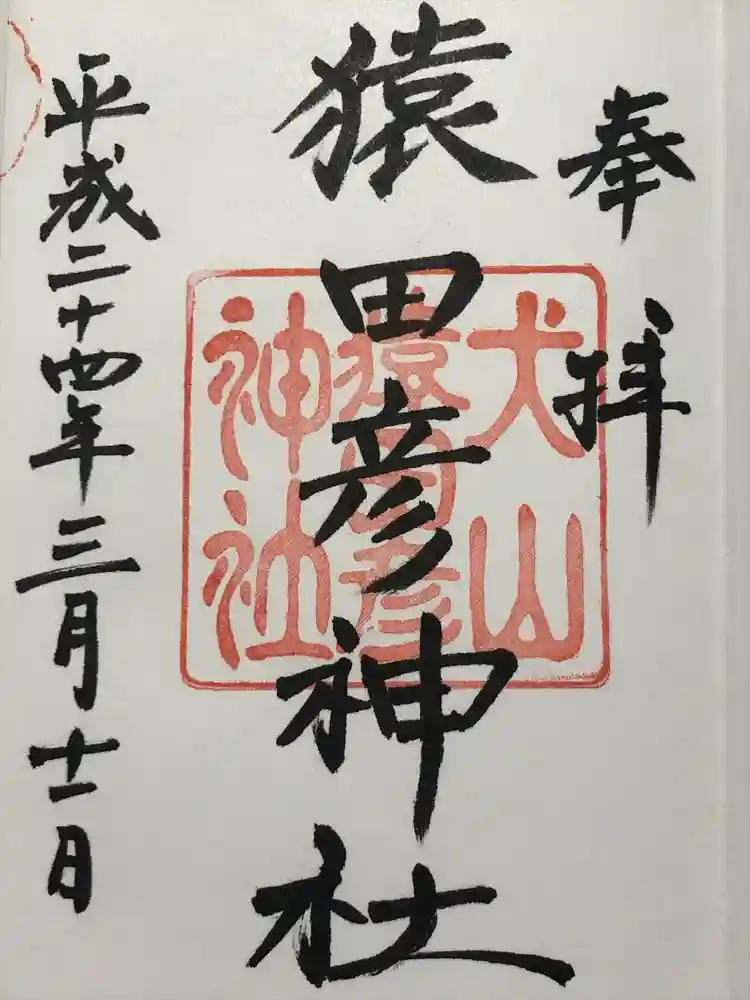 奉拝
猿田彦神社
平成二十四年三月十一日
犬山
猿田彦
神社